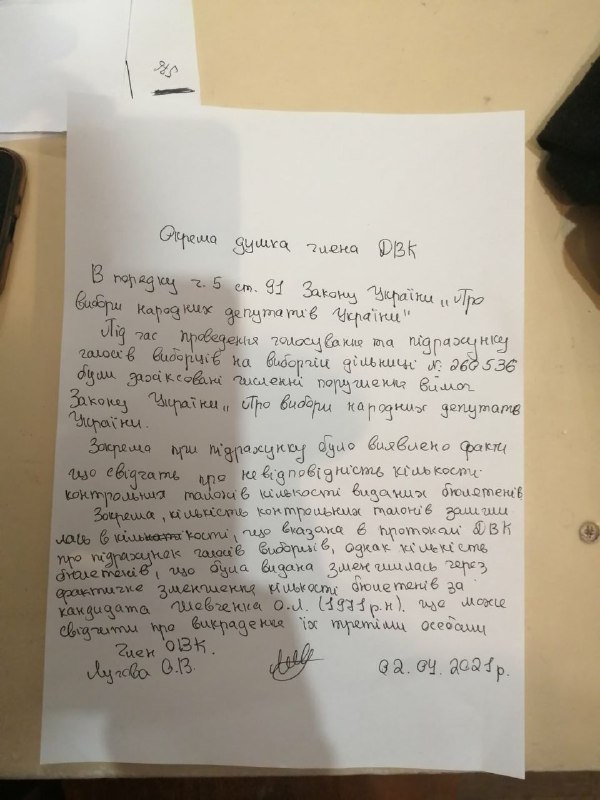 Окрема думка члена ДВК
В порядку ч. 5 ст. 91 Закону України „Про
вибори народних депутатів України"
Під час проведення голосування та підрахунку
голосів виборців на виборчій дільниці № 260536
були зафіксовані численні порушення вимог
Закону України „Про вибори народних депутатв
України.
Зокрема при підрахунку було виявлено факти
що свідчать про невідповідність кількости
контрольних талонів кількості виданих бюлетенів
Зокрема, кількість контрольних талонів залиши
лась в кількости, що вказана в протоколі ДВК
про підрахунок голосів виборців, однак кількість
бюлетенів, що була видана зменшилась через
фактичне зменшення кількості бюлетенів за
кандидата Шевченка О.Л. (1971 р.н). що може
свідчити про викрадення їх третіми особами
Член ОВК.
Лугова О.В. 02.04.2021 р.